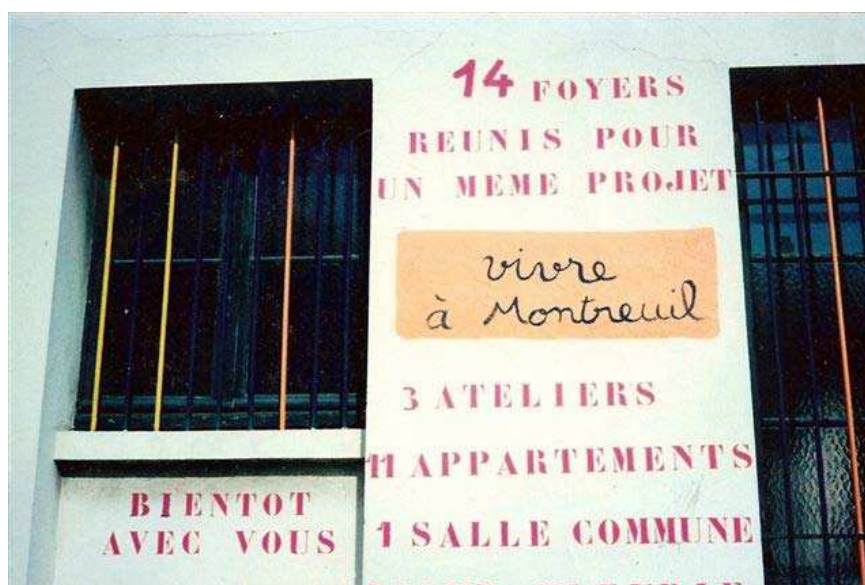 14 FOYERS
REUNIS POUR
UN MEME PROJET
vivre
à Montreuil
3 ATELIERS
11 APPARTEMENTS
1 SALLE COMMUNE
BIENTOT
AVEC VOUS